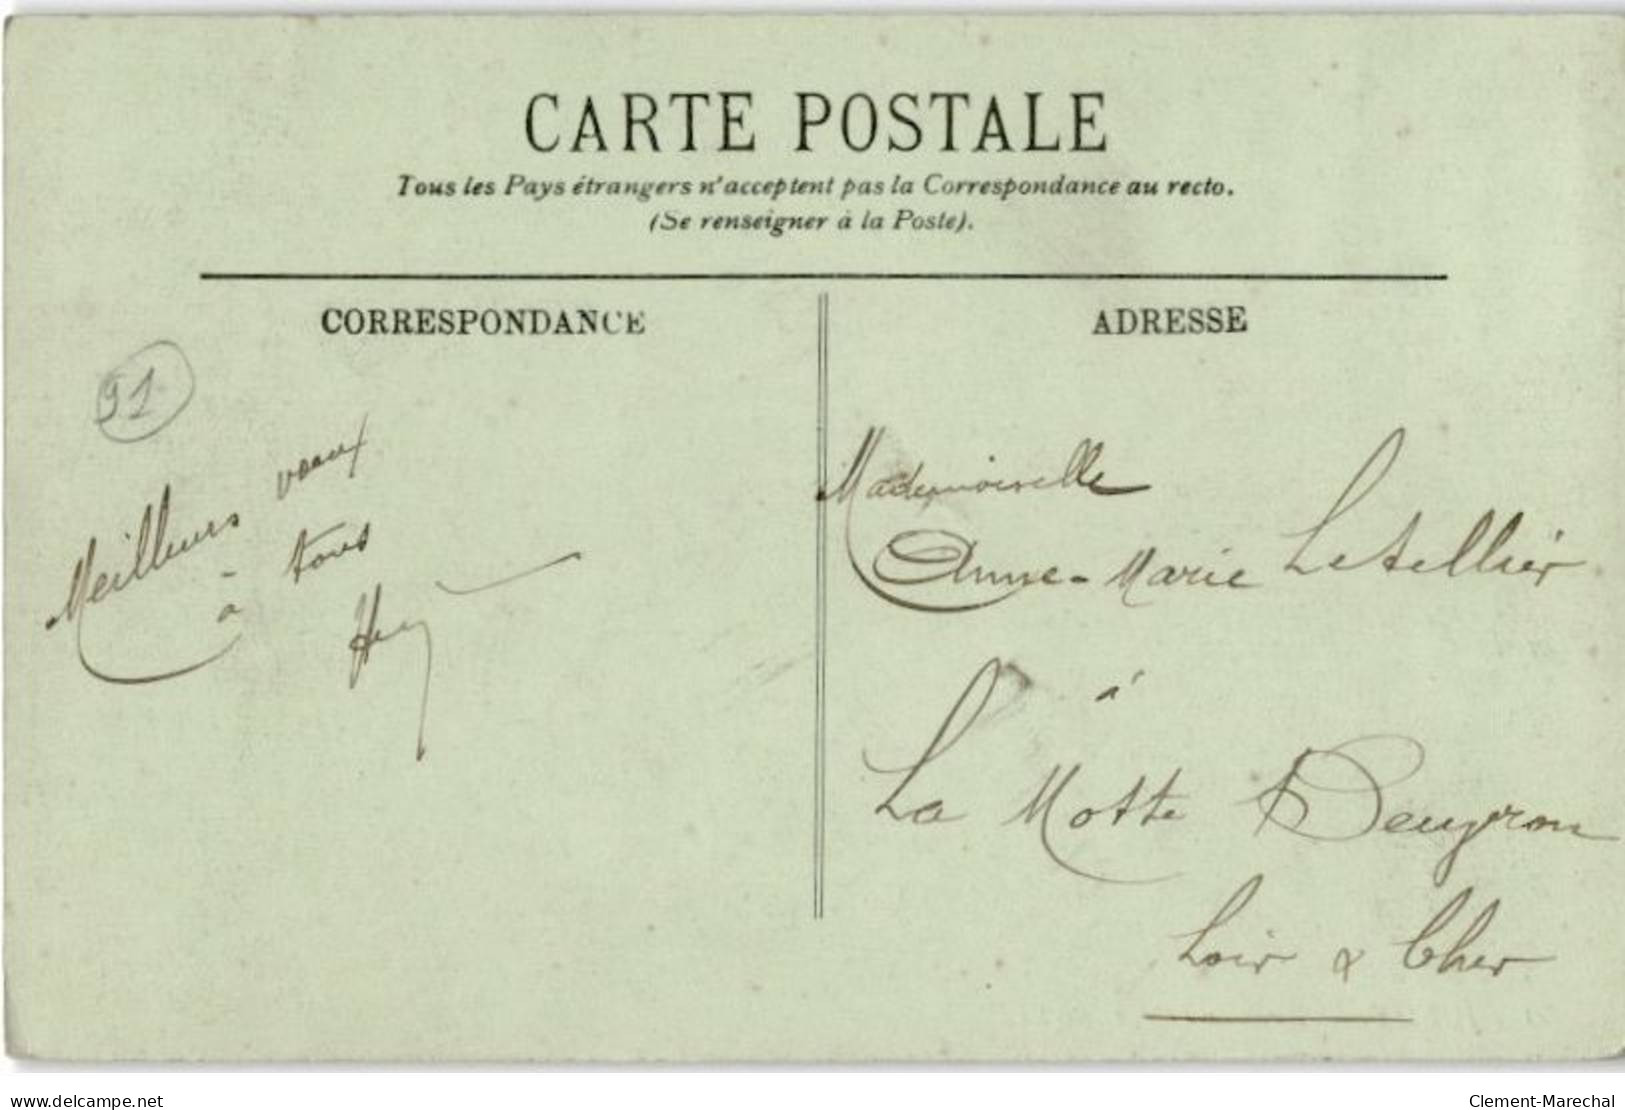 CARTE POSTALE
Tous les Pays étrangers n'acceptent pas la Correspondance au recto.
(Se renseigner à la Poste).
CORRESPONDANCE
ADRESSE
91
Meilleurs vœux
à tous
Mademoiselle
Anne-Marie Letellier
à
La Motte Beuvron
Loir & Cher
www.delcampe.net
Clement-Marechal